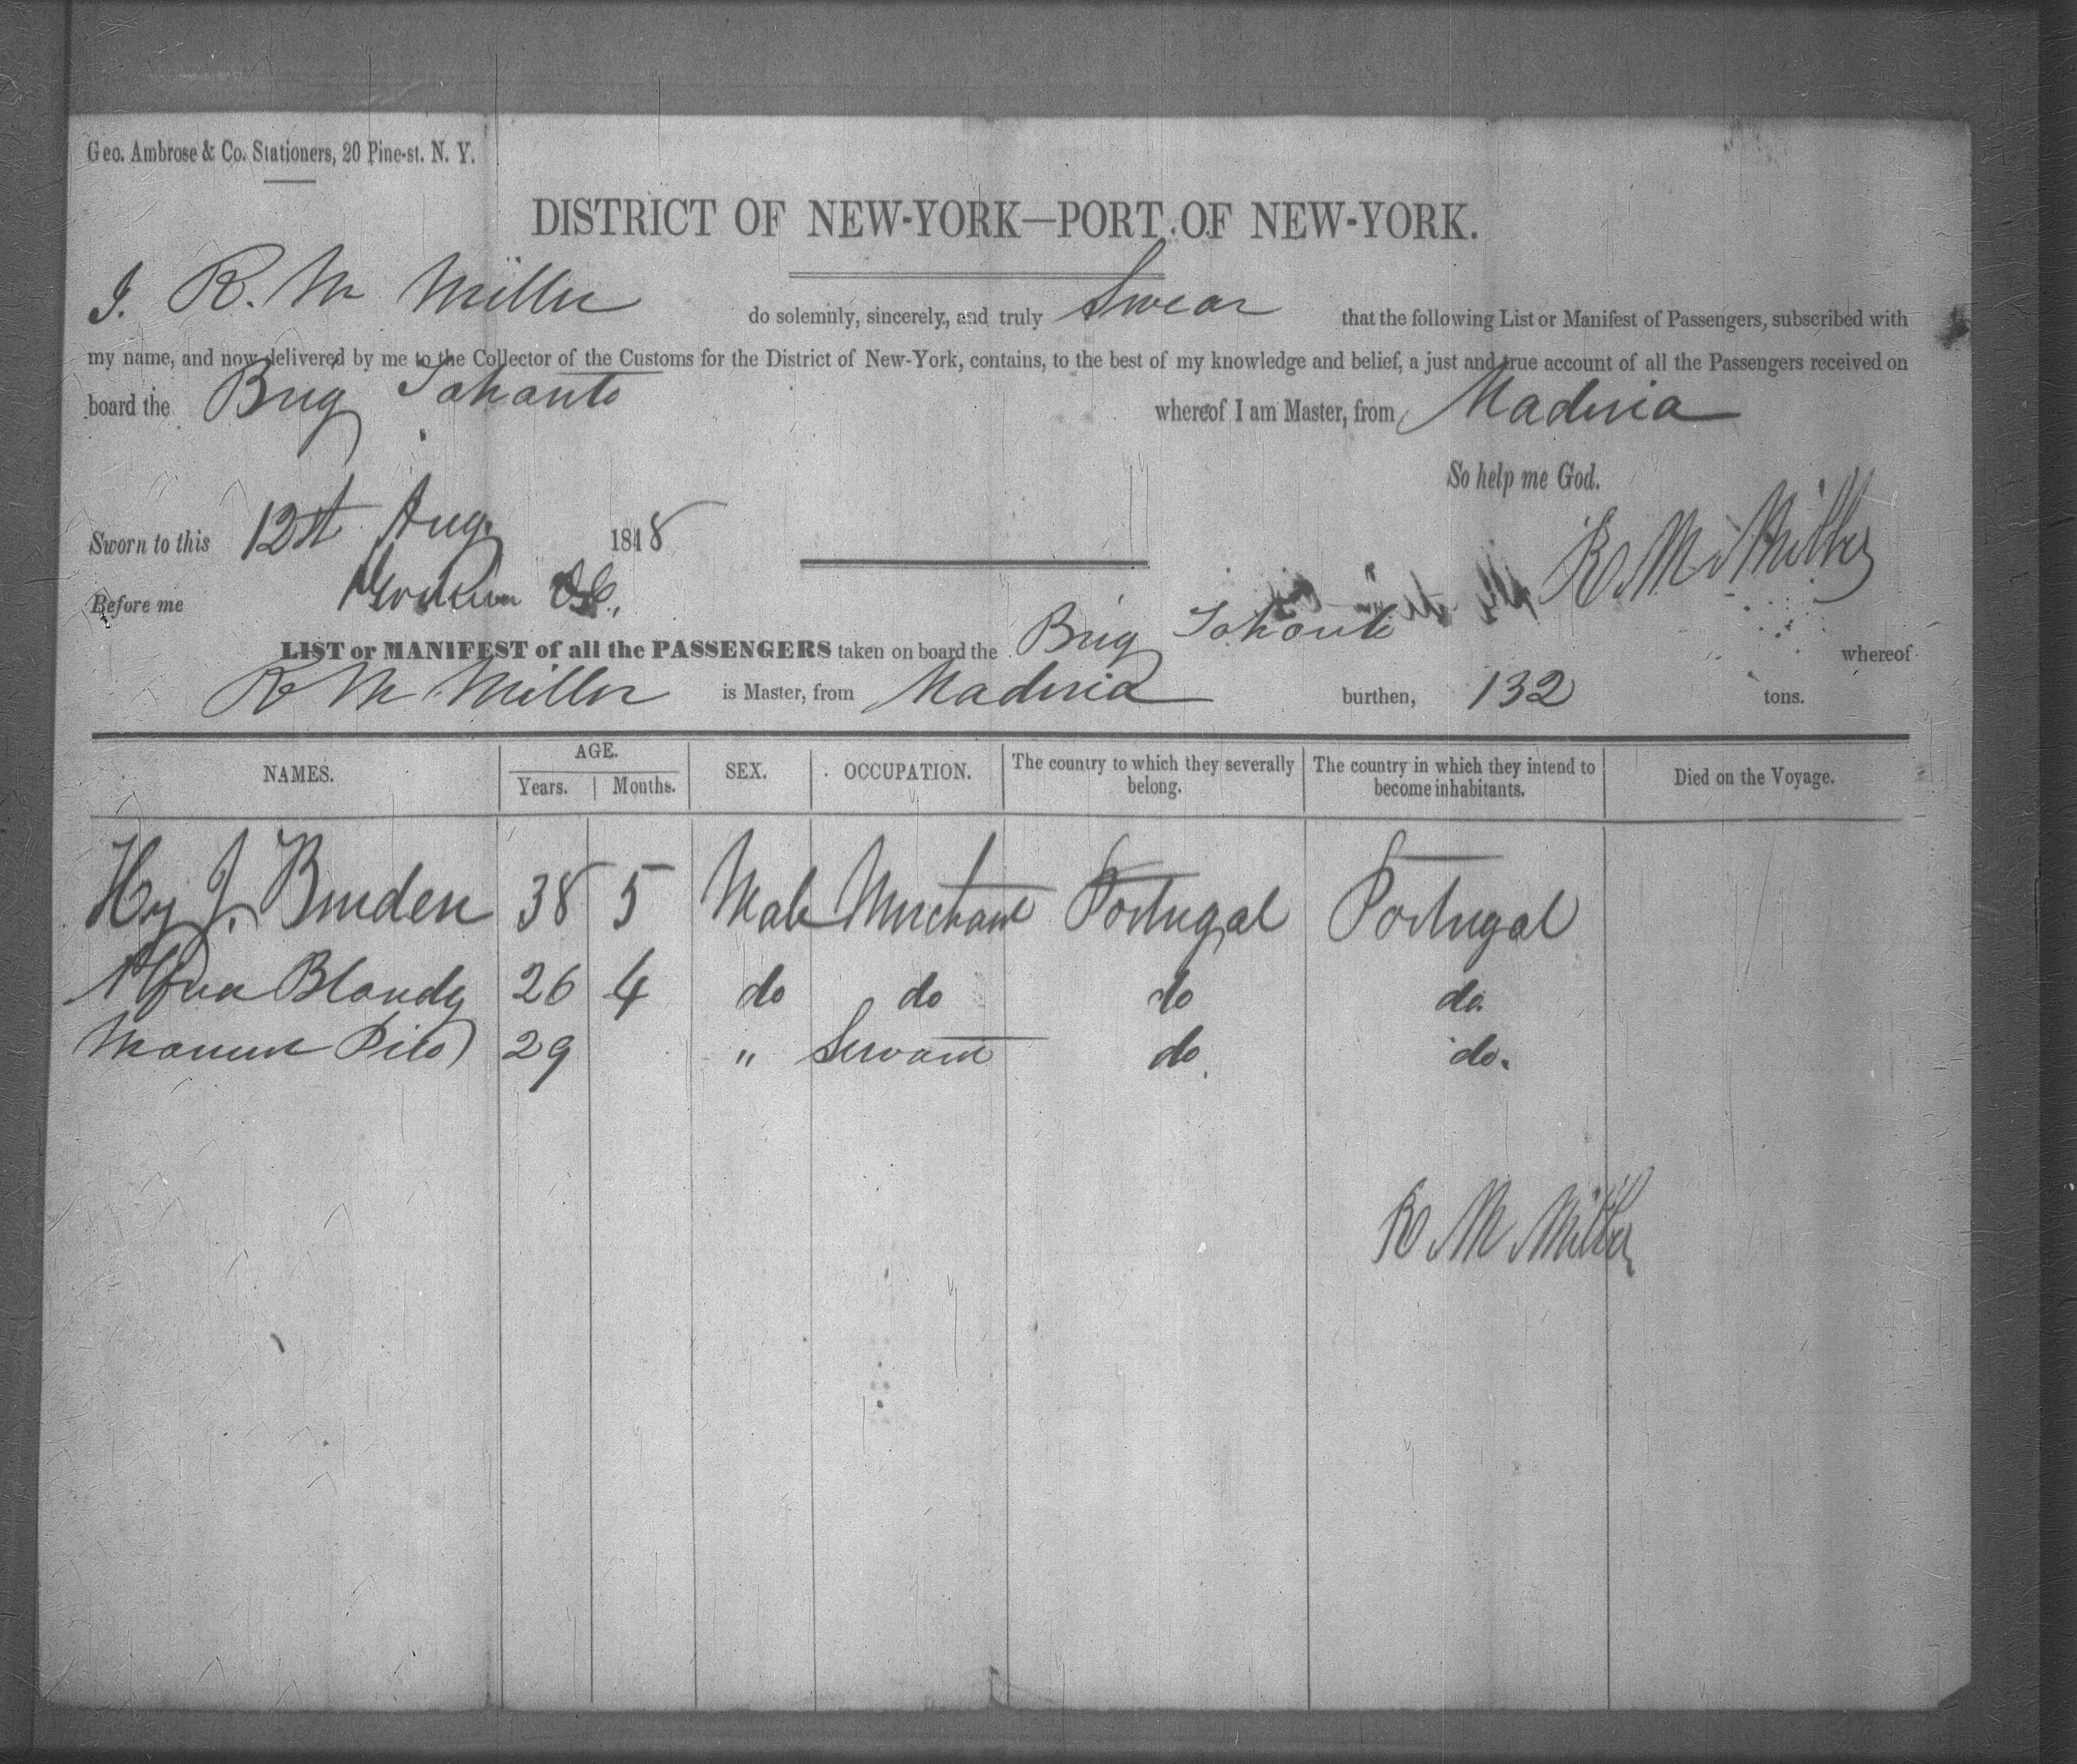 Geo. Ambrose & Co. Stationers, 20 Pine-st. N. Y.
DISTRICT OF NEW-YORK—PORT OF NEW-YORK.
I. R. M Miller do solemnly, sincerely, and truly Swear that the following List or Manifest of Passengers, subscribed with
my name, and now delivered by me to the Collector of the Customs for the District of New-York, contains, to the best of my knowledge and belief, a just and true account of all the Passengers received on
board the Brig Tohanto whereof I am Master, from Maderia
So help me God.
Sworn to this 12st Aug. 1848
R. M. Miller
Before me
LIST or MANIFEST of all the PASSENGERS taken on board the Brig Tohanto whereof
R M Miller is Master, from Maderia burthen, 132 tons.
NAMES. AGE. Years. Months. SEX. OCCUPATION. The country to which they severally belong. The country in which they intend to become inhabitants. Died on the Voyage.
Hy J. Burden 38 5 Male Merchant Portugal Portugal
Blandy 26 4 do do do do.
29 " Servant do do.
R M Miller